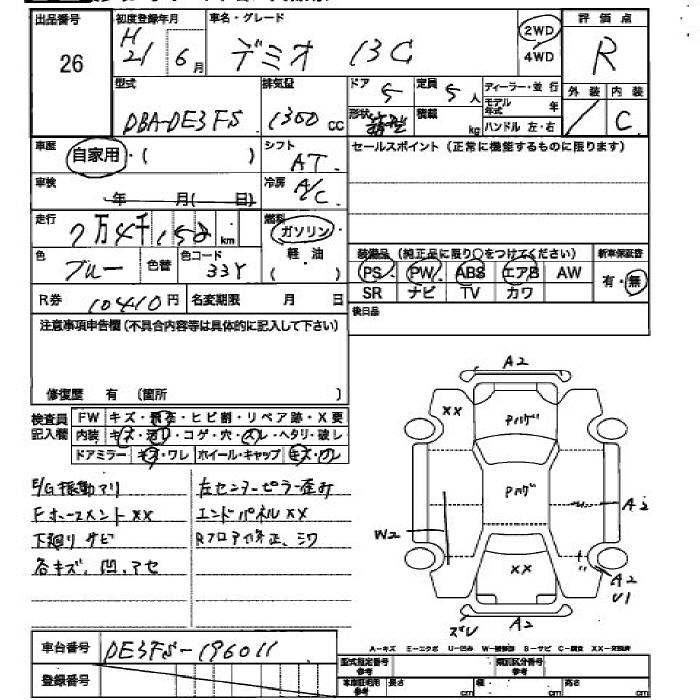 出品番号 初度登録年月 車名・グレード 評価点
26 H21 6月 デミオ 13C 2WD 4WD R
型式 排気量 ドア 5 定員 5人 ディーラー・並行 外装 内装
DBA-DE3FS 1300cc 形状 積載 kg モデル年式 年 ハンドル 左・右 C
車歴 自家用・( ) シフト AT セールスポイント(正常に機能するものに限ります)
車検 年 月( 日) 冷房 A/C
走行 7万4千152km 燃料 ガソリン
色 ブルー 色替 色コード 33Y 軽油 ( )
装備品(純正品に限り○をつけてください) 新車保証書
PS PW ABS エアB AW 有・無
SR ナビ TV カワ
R券 10410円 名変期限 月 日 後日品
注意事項申告欄(不具合内容等は具体的に記入して下さい)
修復歴 有 (箇所 )
検査員記入欄 FW キズ・飛石・ヒビ割・リペア跡・X要
内装 キズ・汚レ・コゲ・穴・スレ・ヘタリ・破レ
ドアミラー キズ・ワレ ホイール・キャップ キズ・ワレ
E/G振動アリ 左センターピラー歪み
Fホースメント XX エンドパネルXX
下廻りサビ Rフロア修正、シワ
各キズ、凹、アセ
A2
XX Pハゲ
Pハゲ
A2
W2
XX
A2
U1
ズレ A2
車台番号 DE3FS-196011
登録番号
A-キズ E-エクボ U-凹み W-補修跡 S-サビ C-腐食 XX-交換済
型式指定番号 参考 類別区分番号 参考
車庫証明用 参考 長さ cm 幅 cm 高さ cm